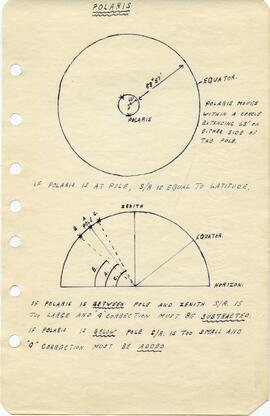 POLARIS
88° 57'
EQUATOR.
POLARIS
POLARIS MOVES
WITHIN A CIRCLE
EXTENDING 63' ON
EITHER SIDE OF
THE POLE.
IF POLARIS IS AT POLE, S/A IS EQUAL TO LATITUDE.
ZENITH
POLE
B A C
EQUATOR.
B A C
HORIZON.
IF POLARIS IS BETWEEN POLE AND ZENITH S/A. IS
TOO LARGE AND "Q" CORRECTION MUST BE SUBTRACTED.
IF POLARIS IS BELOW POLE S/A. IS TOO SMALL AND
"Q" CORRECTION MUST BE ADDED